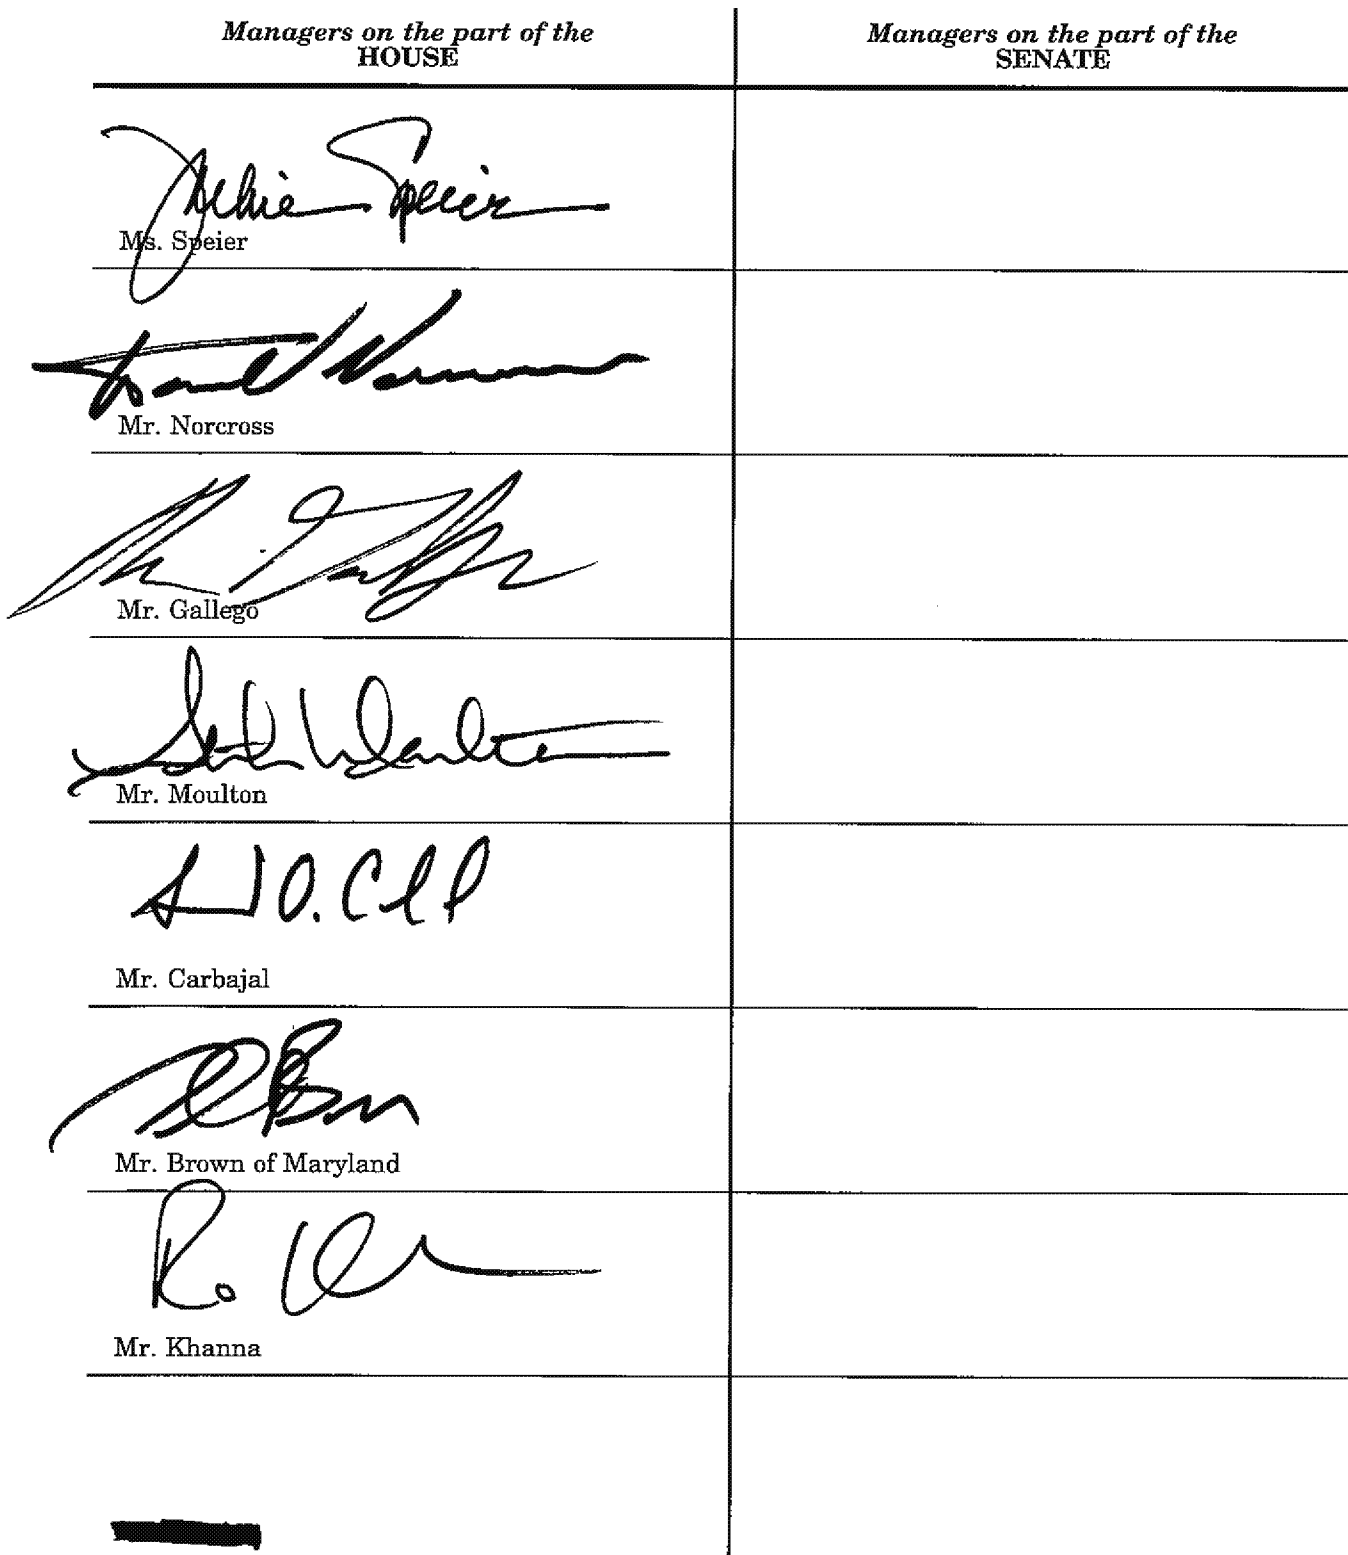 Managers on the part of the
HOUSE
Managers on the part of the
SENATE
Jackie Speier
Ms. Speier
Donald Norcross
Mr. Norcross
Mr. Gallego
Seth Moulton
Mr. Moulton
Mr. Carbajal
Mr. Brown of Maryland
Ro
Mr. Khanna